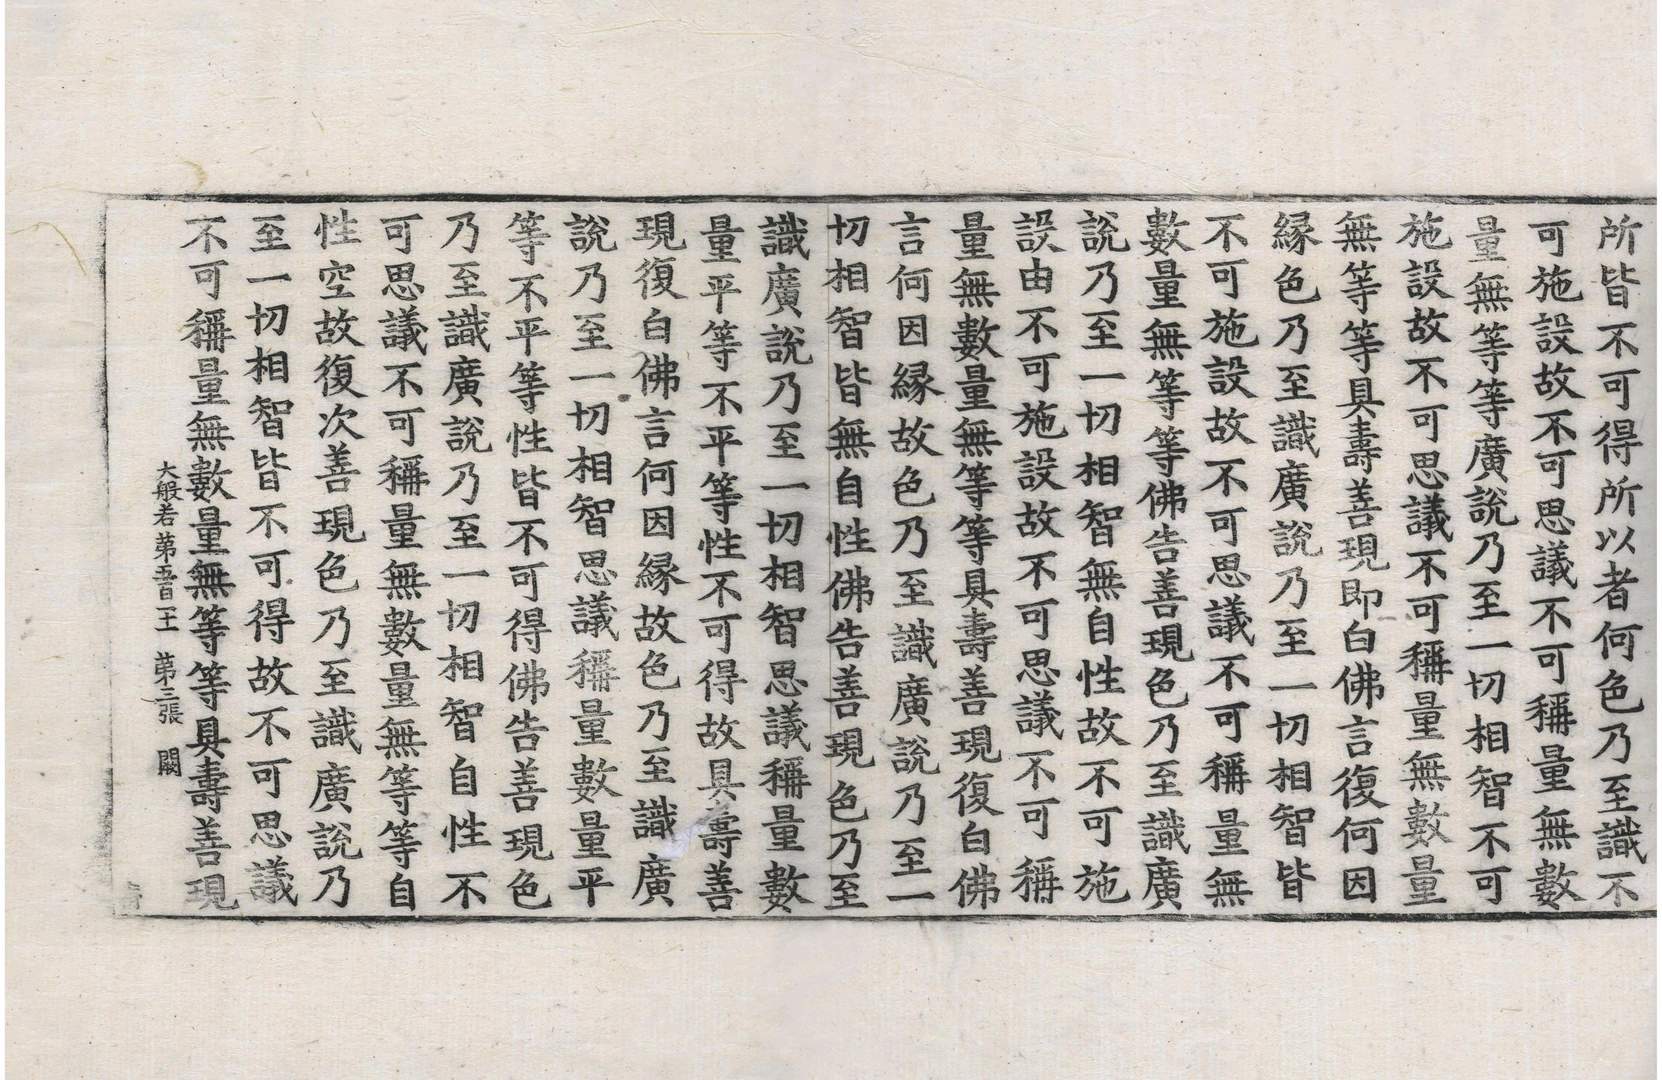 所皆不可得所以者何色乃至識不
可施設故不可思議不可稱量無數
量無等等廣說乃至一切相智不可
施設故不可思議不可稱量無數量
無等等具壽善現即白佛言復何因
緣色乃至識廣說乃至一切相智皆
不可施設故不可思議不可稱量無
數量無等等佛告善現色乃至識廣
說乃至一切相智無自性故不可施
設由不可施設故不可思議不可稱
量無數量無等等具壽善現復白佛
言何因緣故色乃至識廣說乃至一
切相智皆無自性佛告善現色乃至
識廣說乃至一切相智思議稱量數
量平等不平等性不可得故具壽善
現復白佛言何因緣故色乃至識廣
說乃至一切相智思議稱量數量平
等不平等性皆不可得佛告善現色
乃至識廣說乃至一切相智自性不
可思議不可稱量無數量無等等自
性空故復次善現色乃至識廣說乃
至一切相智皆不可得故不可思議
不可稱量無數量無等等具壽善現
大般若第五百 第三張 闕